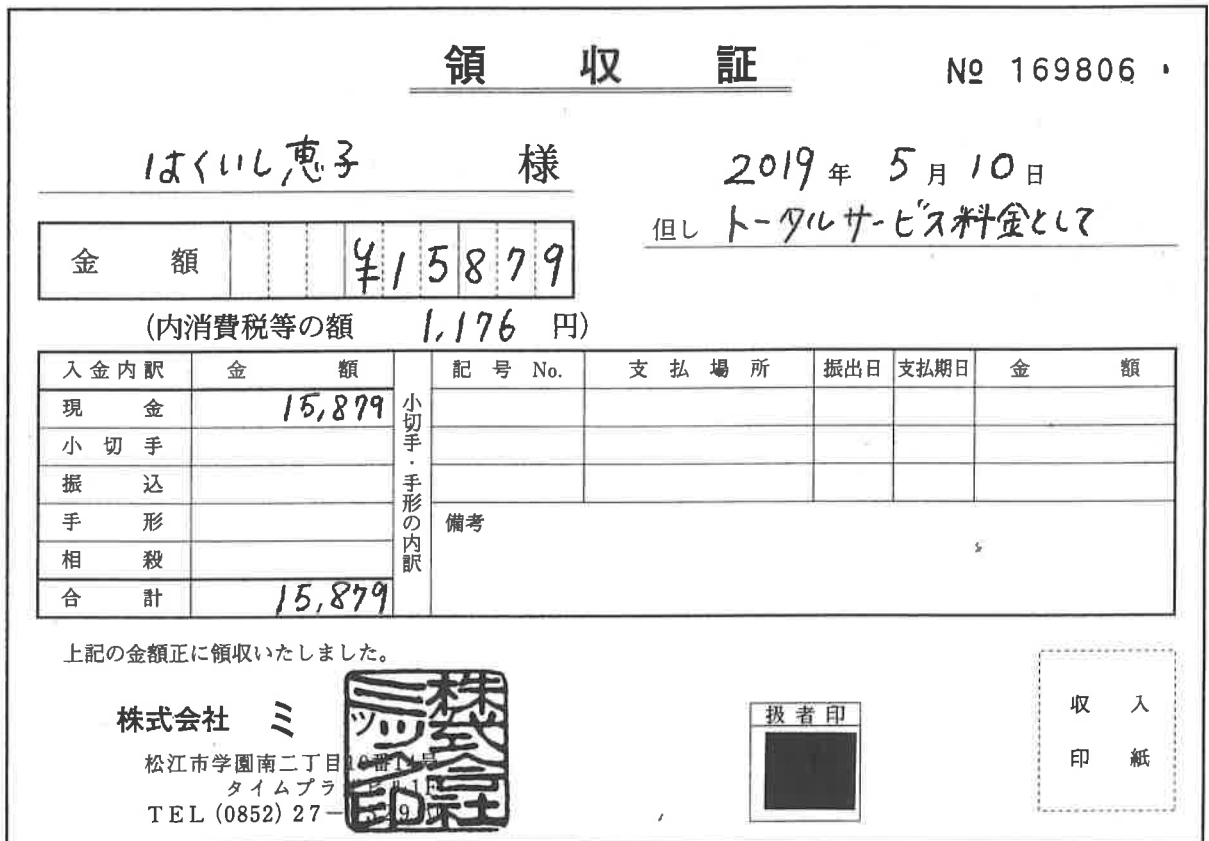 領収証
№ 169806
はくいし恵子 様
2019年 5月 10日
但し トータルサービス料金として
金額 ¥15879
(内消費税等の額 1,176 円)
入金内訳 金額
現金 15,879
小切手
振込
手形
相殺
合計 15,879
小切手・手形の内訳
記号No. 支払場所 振出日 支払期日 金額
備考
上記の金額正に領収いたしました。
株式会社 ミ
松江市学園南二丁目
タイムプラ
TEL (0852) 27-
扱者印
収入
印紙